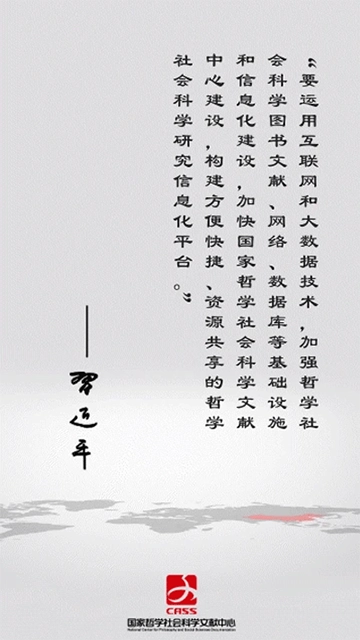 “要运用互联网和大数据技术，加强哲学社
会科学图书文献、网络、数据库等基础设施
和信息化建设，加快国家哲学社会科学文献
中心建设，构建方便快捷、资源共享的哲学
社会科学研究信息化平台。”
——習近平
CASS
国家哲学社会科学文献中心
National Center for Philosophy and Social Sciences Documentation